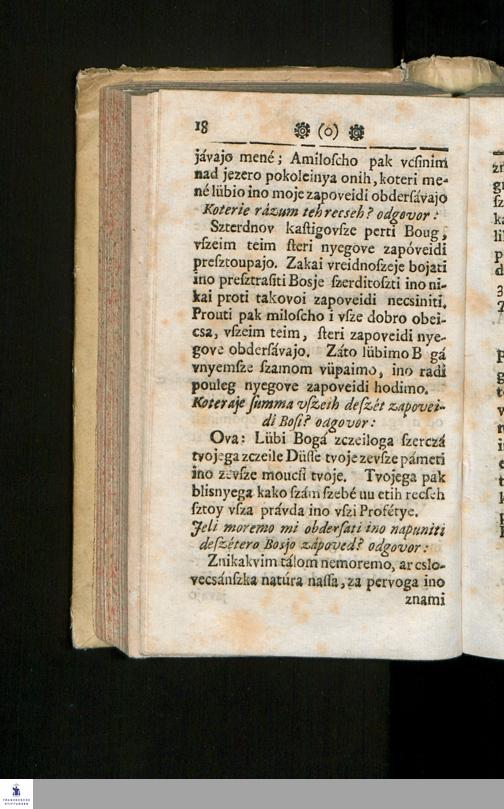 18 (o)
jávajo mené; Amiloscho pak vcſinim
nad jezero pokoleinya onih, koteri me-
né lübio ino moje zapoveidi obderſávajo
Koterie rázum teh recseh? odgovor:
Szterdnov kaſtigovſze perti Boug,
vſzeim teim ſteri nyegove zapóveidi
presztoupajo. Zakai vreidnoſzeje bojati
ino presztraſiti Bosje ſzerditoſzti ino ni-
kai proti takovoi zapoveidi necsiniti.
Prouti pak miloscho i vſze dobro obei-
csa, vſzeim teim, ſteri zapoveidi nye-
gove obderſávajo. Záto lübimo B gá
vnyemſze ſzamom vüpaimo, ino radi
pouleg nyegove zapoveidi hodimo.
Koteraje ſumma vſzeih deſzét zapovei-
di Boſi? odgovor:
Ova: Lübi Bogá zczeiloga ſzerczá
tvojega zczeile Düſſe tvoje zevſze pámeti
ino zevſze moucſi tvoje. Tvojega pak
blisnyega kako ſzám ſzebé uu etih recseh
ſztoy vſza právda ino vſzi Profétye.
Jeli moremo mi obderſati ino napuniti
deſzétero Bosjo zápoved? odgovor:
Znikakvim tálom nemoremo, ar cslo-
vecsánſzka natúra naſſa, za pervoga ino
znami
FRANCKESCHE
STIFTUNGEN